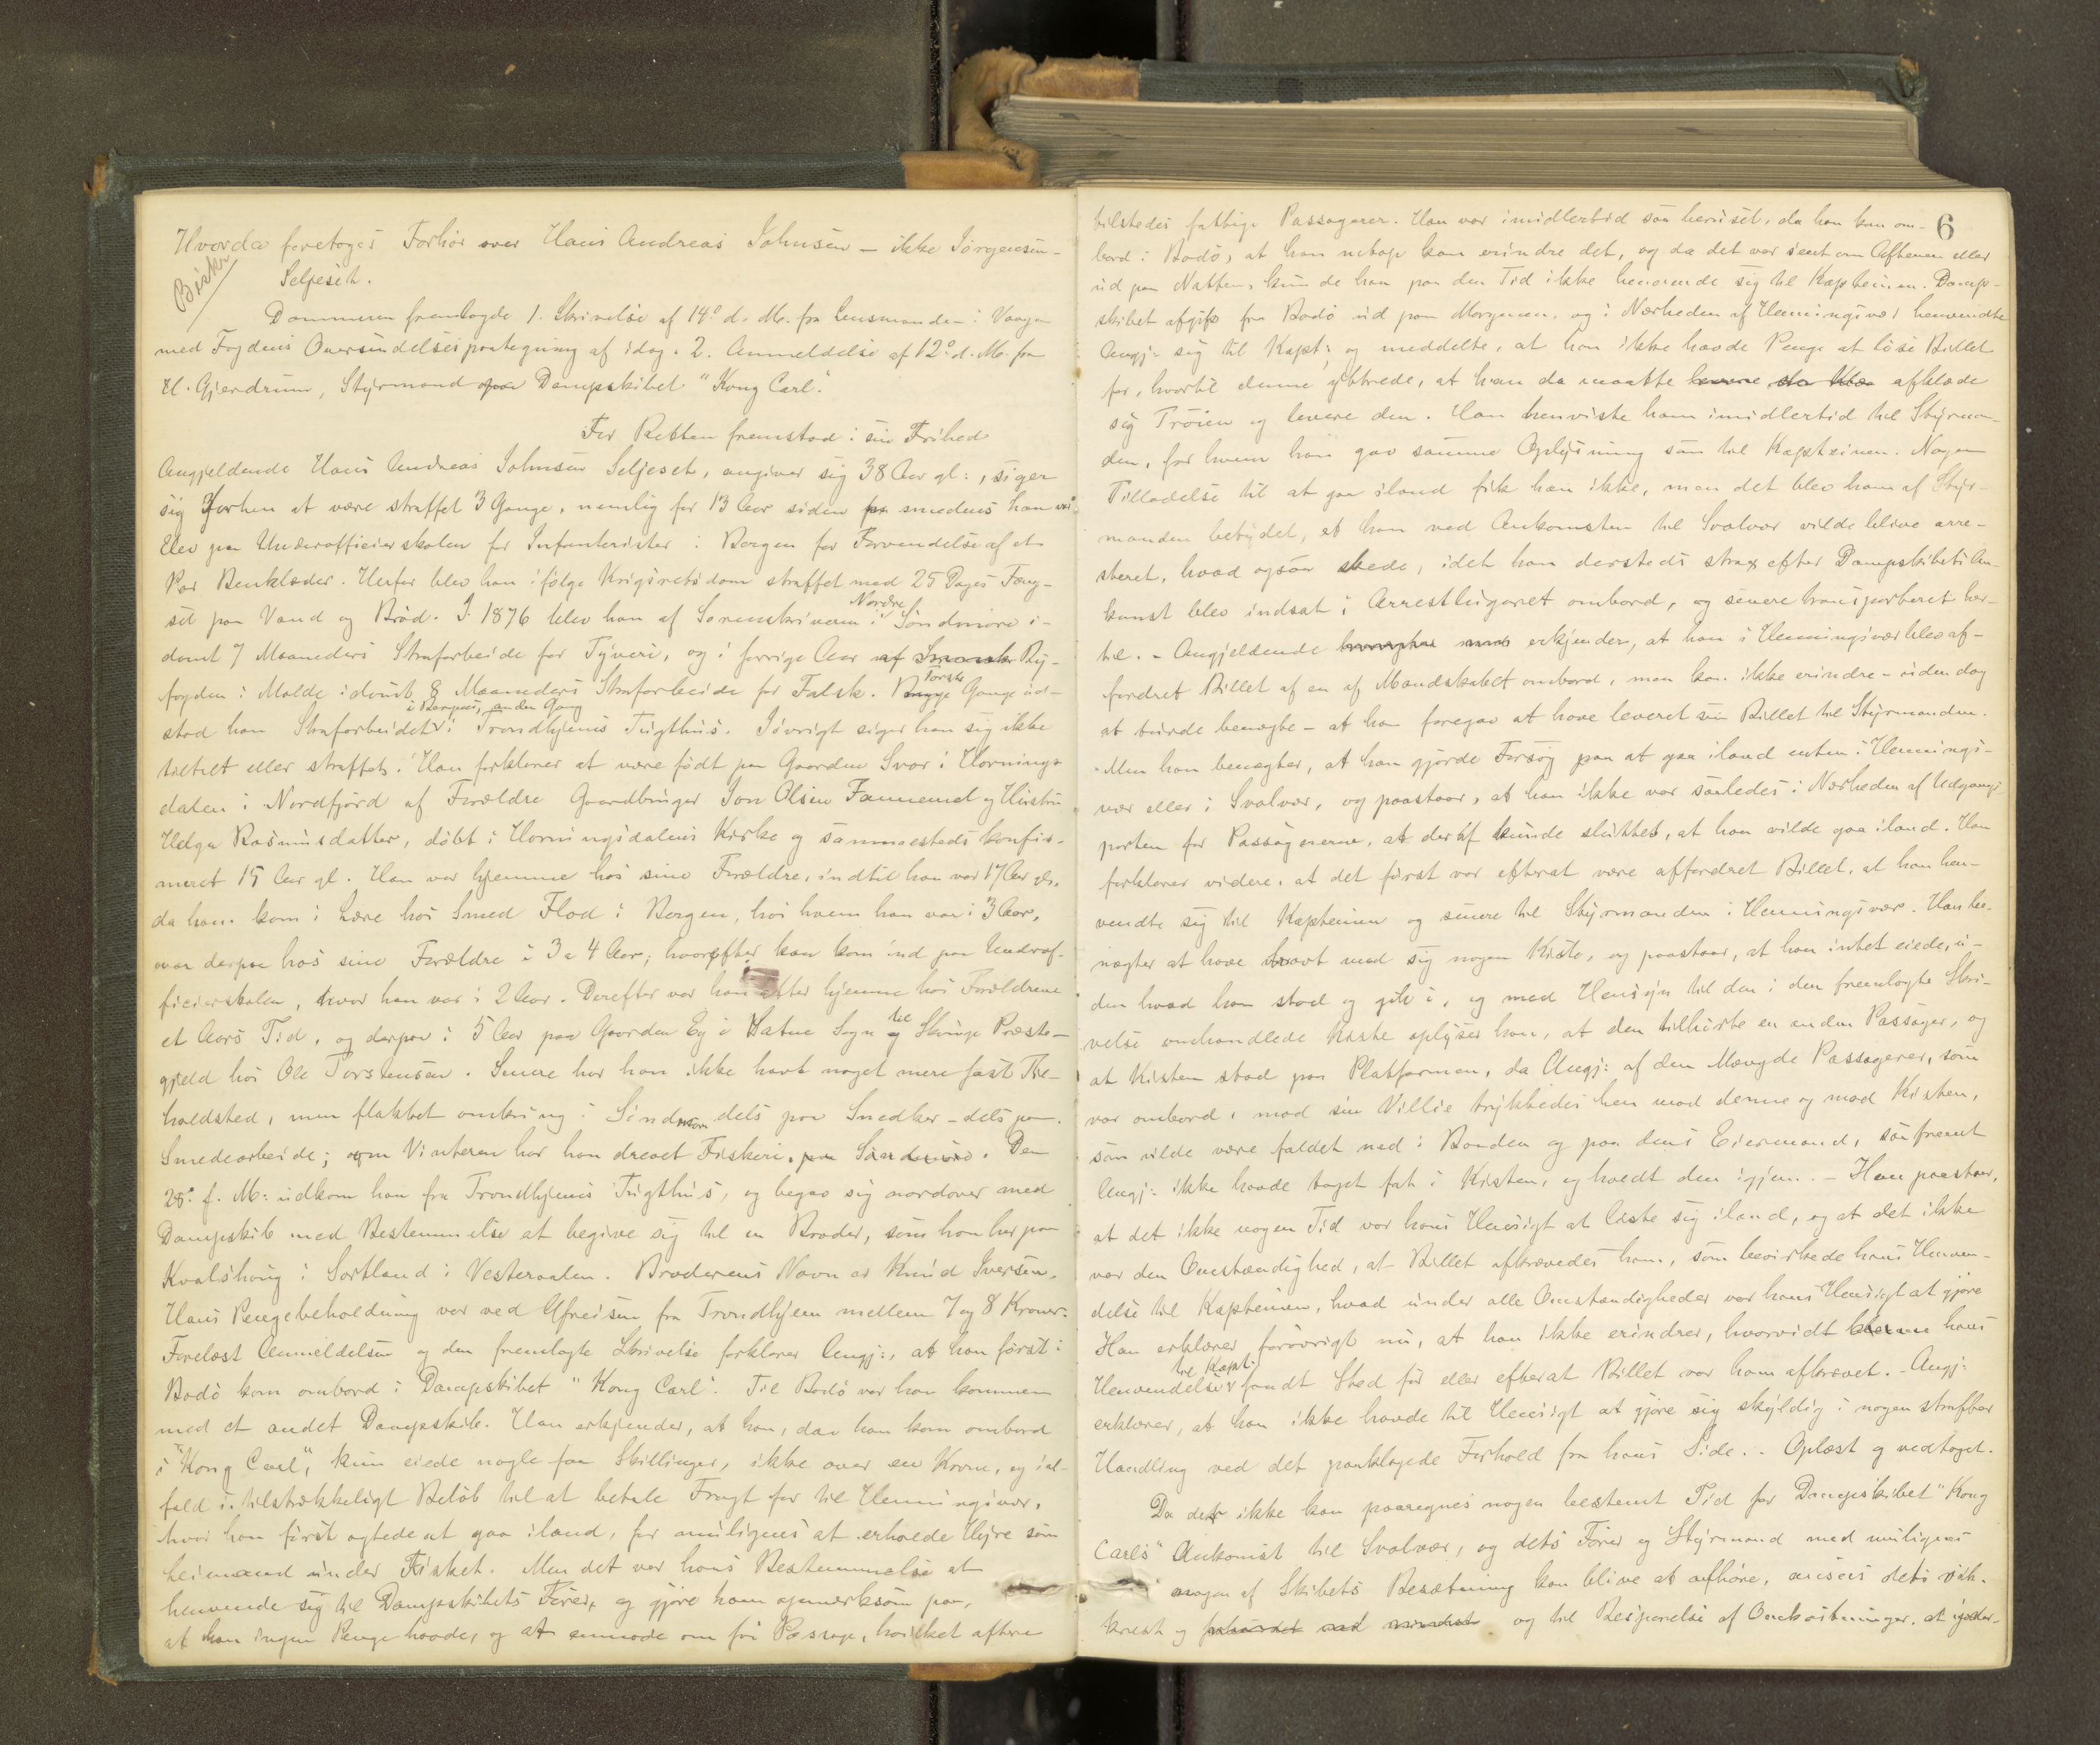 Hvorda foretoges Forhör over Hans Andreas Johnsen – ikke Jörgensen –
Beskr.
Seljeseth.
Dommeren fremlagde 1. Skrivelse af 14de d. M. fra Lensmanden i Vaagan
med Fogdens Oversendelsespaategning af idag. 2. Anmeldelse af 12te d. M. fra
H. Gjendrum, Styrmand paa Dampskibet "Kong Carl".
For Retten fremstod i sin Frihed
Angjeldende Hans Andreas Johnsen Seljeset, angiver sig 38 Aar gl:, siger
sig forhen at være straffet 3 Gange, nemlig for 13 Aar siden smedens han var
Elev paa Underofficierskolen for Infanterister i Bergen for Forvendelse af et
Par Benklæder. Herfor blev han ifölge Krigsretsdom straffet med 25 Dages Fæng-
sel paa Vand og Bröd. I 1876 blev han af Sorenskriveren i Nordre Söndmöre i-
dömt 7 Maaneders Strafarbeide for Tyveri, og i forrige Aar af By-
fogden i Molde idömt 8 Maaneders Strafarbeide for Falsk. Förste Gange ud-
stod han Strafarbeidet i Bergens, anden Gang i Trondhjems Tugthus. Iövrigt siger han sig ikke
tiltalt eller straffet. Han forklarer at være födt paa Gaarden Svor i Hornings-
dalen i Nordfjord af Forældre Gaardbruger Jon Olsen Fannemel og Hustru
Helga Rasmusdatter, döbt i Horningsdalens Kirke og sammesteds konfir-
meret 15 Aar gl. Han var hjemme hos sine Forældre, indtil han var 17 Aar gl.,
da han kom i Lære hos Smed Flod i Bergen, hos hvem han var i 3 Aar,
var derpaa hos sine Forældre i 3 a 4 Aar; hvorefter han kom ind paa Underof-
ficierskolen, hvor han var i 2 Aar. Derefter var han atter hjemme hos Forældrene
et Aars Tid, og derpaa i 5 Aar paa Gaarden Eg i Vatne Sogn til Skouge Præste-
gjeld hos Ole Torstensen. Senere har han ikke havt noget mere fast Til-
holdsted, men flakket omkring i Söndmöre dels paa Snedker – dels paa
Smedearbeide; om Vinteren har han drevet Fiskeri. Den
28de f. M: udkom han fra Trondhjems Tugthus, og begav sig nordover med
Dampskib med Bestemmelse at begive sig til en Broder, som han har paa
Kvalshoug i Sortland i Vesteraalen. Broderens Navn er Knud Iversen.
Hans Pengebeholdning var ved Afreisen fra Trondhjem mellem 7 og 8 Kroner.
Forelæst Anmeldelsen og den fremlagte Skrivelse forklarer Angj:, at han först i
Bodö kom ombord i Dampskibet "Kong Carl". Til Bodö var han kommen
med et andet Dampskib. Han erkjender, at han, da han kom ombord
i "Kong Carl", kun eiede nogle faa Skillinger, ikke over en Krone, og ial-
fald i tilstrækkeligt Belöb til at betale Fragt for til Henningsvær,
hvor han först agtede at gaa iland, for muligens at erholde Hyre som
heimand under Fisket. Men det var hans Bestemmelse at
henvende sig til Dampskibets Förer, og gjöre ham opmærksom paa,
at han ingen Penge havde, og at anmode om fri Passage, hvilket oftere
6
tilstedes fattige Passagerer. Han var imidlertid saa beruset, da han kom om-
bord i Bodö, at han neppe kan erindre det, og da det var sent om Aftenen eller
ud paa Natten, kunde han paa den Tid ikke henvende sig til Kapteinen. Damp-
skibet afgik fra Bodö ud paa Morgenen, og i Nærheden af Henningsvær henvendte
Angj: sig til Kapt: og meddelte, at han ikke havde Penge at löse Billet
for, hvortil denne yttrede, at han da maatte afklæde
sig Tröien og levere den. Han henviste ham imidlertid til Styrman-
den, for hvem han gav samme Oplysning som til Kapteinen. Nogen
Tilladelse til at gaa iland fik han ikke, men det blev ham af Styr-
manden betydet, at han ved Ankomsten til Svolvær vilde blive arre-
steret, hvad ogsaa skede, idet han dersteds strax efter Dampskibets An-
komst blev indsat i Arrestlugaret ombord, og senere transporteret her-
til. – Angjeldende erkjender, at han i Henningsvær blev af-
fordret Billet af en af Mandskabet ombord, men kan ikke erindre – uden dog
at turde benægte – at han foregav at have leveret sin Billet til Styrmanden.
Men han benægter, at han gjorde Forsög paa at gaa iland enten i Hennings-
vær eller i Svolvær, og paastaar, at han ikke var saaledes i Nærheden af Udgangs-
porten for Passagererne, at deraf kunde sluttes, at han vilde gaa iland. Han
forklarer videre, at det först var efterat være affordret Billet, at han hen-
vendte sig til Kapteinen og senere til Styrmanden i Henningsvær. Han be-
nægter at have havt med sig nogen Kiste, og paastaar, at han intet eiede, u-
den hvad han stod og gik i, og med Hensyn til den i den fremlagte Skri-
velse omhandlede Kiste oplyser han, at den tilhörte en anden Passager, og
at Kisten stod paa Platformen, da Angj: af den Mængde Passagerer, som
var ombord, mod sin Villie trykkedes hen mod denne og mod Kisten,
som vilde være faldet ned i Baaden og paa dens Eiermand, saafremt
Angj: ikke havde taget fat i Kisten, og holdt den igjen. – Han paastaar,
at det ikke nogen Tid var hans Hensigt at liste sig iland, og at det ikke
var den Omstændighed, at Billet afkrævedes ham, som bevirkede hans Henven-
delse til Kapteinen, hvad under alle Omstændigheder var hans Hensigt at gjöre
Han erklærer forövrigt nu, at han ikke erindrer, hvorvidt hans
Henvendelse til Kapt. fandt Sted för eller efterat Billet var ham afkrævet. – Angj:
erklærer, at han ikke havde til Hensigt at gjöre sig skyldig i nogen strafbar
Handling ved det paaklagede Forhold fra hans Side. – Oplæst og vedtaget.
Da der ikke kan paaregnes nogen bestemt Tid for Dampskibet "Kong
Carls" Ankomst til Svolvær, og dets Förer og Styrmand med muligens
nogen af Skibets Besætning kan blive at afhöre, ansees dets
og til Besparelse af Omkostninger, at